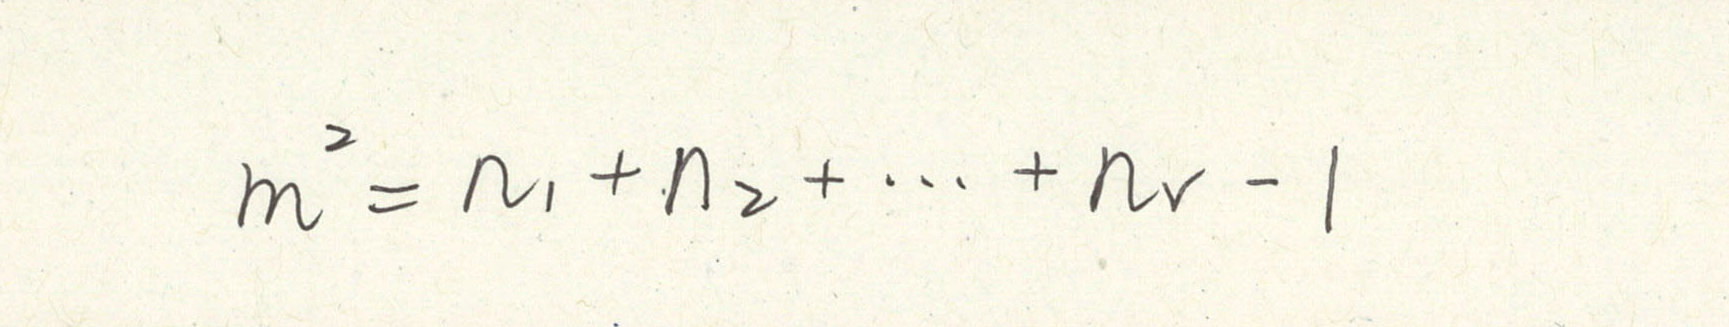 m² = n₁ + n₂ + ··· + nᵣ - 1